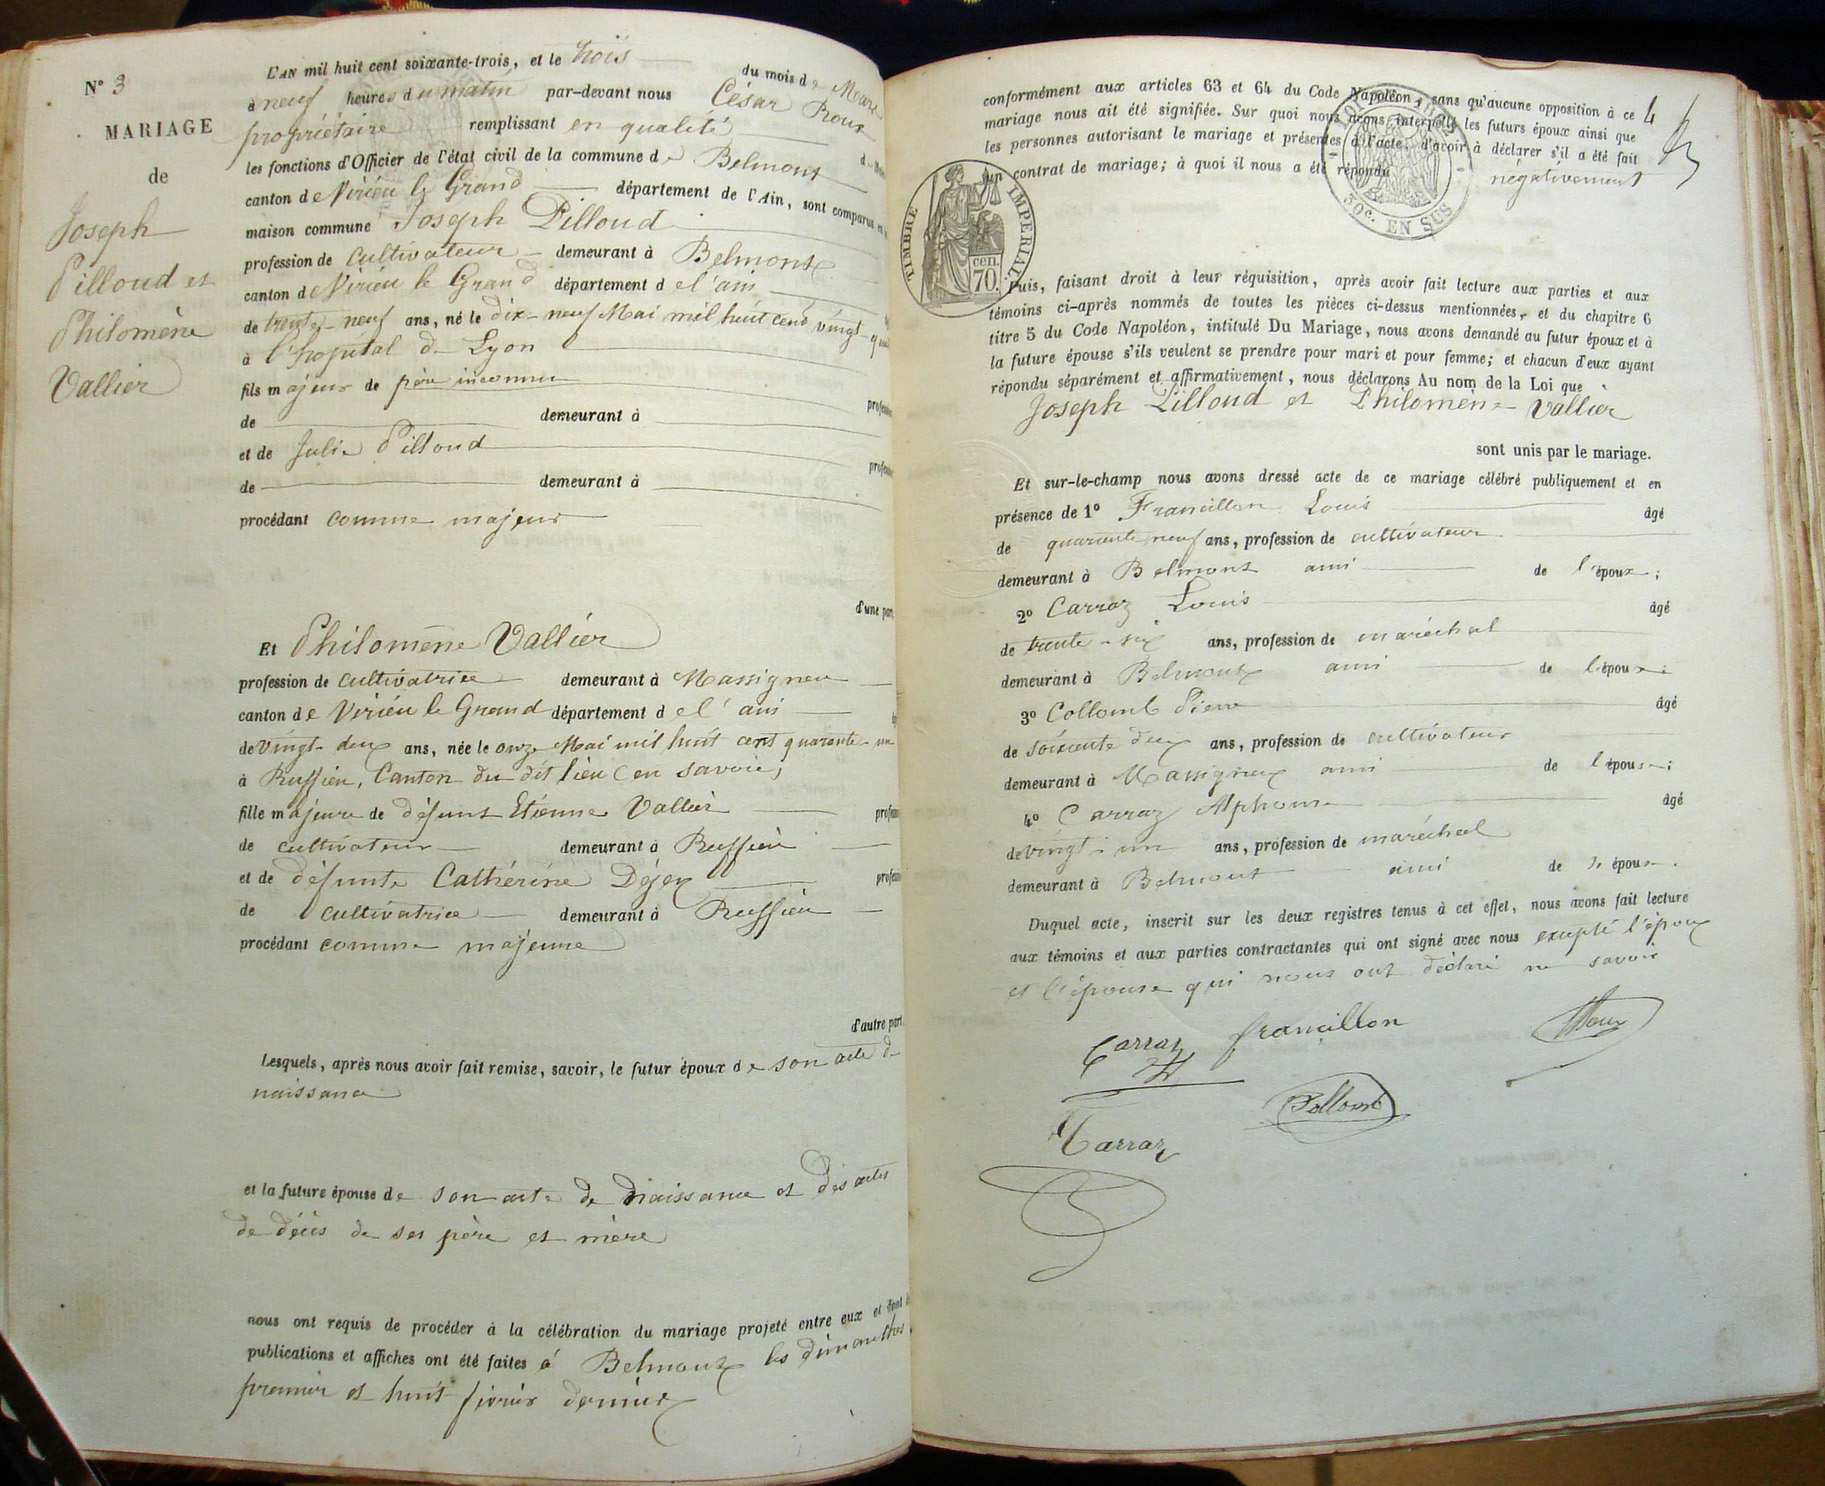 N° 3
MARIAGE
de
Joseph
Pilloud et
Philomène
Vallier
L'AN mil huit cent soixante-trois, et le trois du mois de Mars
à neuf heures du matin par-devant nous César Roux
propriétaire remplissant en qualité
les fonctions d'Officier de l'état civil de la commune de Belmont
canton de Virieu le Grand département de l'Ain, sont comparus en
maison commune Joseph Pilloud
profession de cultivateur demeurant à Belmont
canton de Virieu le Grand département de l'ain
de trente-neuf ans, né le dix-neuf Mai mil huit cent vingt-
à l'hopital de Lyon
fils majeur de père inconnu
de demeurant à
et de Julie Pilloud
de demeurant à
procédant comme majeur
d'une part
Et Philomène Vallier
profession de cultivatrice demeurant à Massignieu
canton de Virieu le Grand département de l'ain
de vingt-deux ans, née le onze Mai mil huit cent quarante-un
à Ruffieu, Canton du dit lieu (en savoie)
fille majeure de défunt Etienne Vallier
de cultivateur demeurant à Ruffieu
et de défunte Cathérine Déjey
de cultivatrice demeurant à Ruffieu
procédant comme majeure
d'autre part.
Lesquels, après nous avoir fait remise, savoir, le futur époux de son acte de
naissance
et la future épouse de son acte de naissance et des actes
de décès de ses père et mère
nous ont requis de procéder à la célébration du mariage projeté entre eux et dont les
publications et affiches ont été faites à Belmont les dimanches
premier et huit février dernier
4
conformément aux articles 63 et 64 du Code Napoléon, sans qu'aucune opposition à ce
mariage nous ait été signifiée. Sur quoi nous avons interpellé les futurs époux ainsi que
les personnes autorisant le mariage et présentes à l'acte, d'avoir à déclarer s'il a été fait
un contrat de mariage; à quoi il nous a été répondu négativement
30c. EN SUS
TIMBRE IMPERIAL
cen.
70.
Puis, faisant droit à leur réquisition, après avoir fait lecture aux parties et aux
témoins ci-après nommés de toutes les pièces ci-dessus mentionnées, et du chapitre 6
titre 5 du Code Napoléon, intitulé Du Mariage, nous avons demandé au futur époux et à
la future épouse s'ils veulent se prendre pour mari et pour femme; et chacun d'eux ayant
répondu séparément et affirmativement, nous déclarons Au nom de la Loi que
Joseph Pilloud et Philomène Vallier
sont unis par le mariage.
Et sur-le-champ nous avons dressé acte de ce mariage célébré publiquement et en
présence de 1° Francillon Louis âgé
de quarante neuf ans, profession de cultivateur
demeurant à Belmont ami de l'époux;
2° Carraz Louis âgé
de trente-six ans, profession de maréchal
demeurant à Belmont ami de l'époux;
3° Collomb Pierre âgé
de soixante deux ans, profession de cultivateur
demeurant à Massignieu ami de l'épouse;
4° Carraz Alphonse âgé
de vingt-un ans, profession de maréchal
demeurant à Belmont ami de l'épouse.
Duquel acte, inscrit sur les deux registres tenus à cet effet, nous avons fait lecture
aux témoins et aux parties contractantes qui ont signé avec nous excepté l'époux
et l'épouse qui nous ont déclaré ne savoir
Carraz francillon Roux
Collomb
Carraz